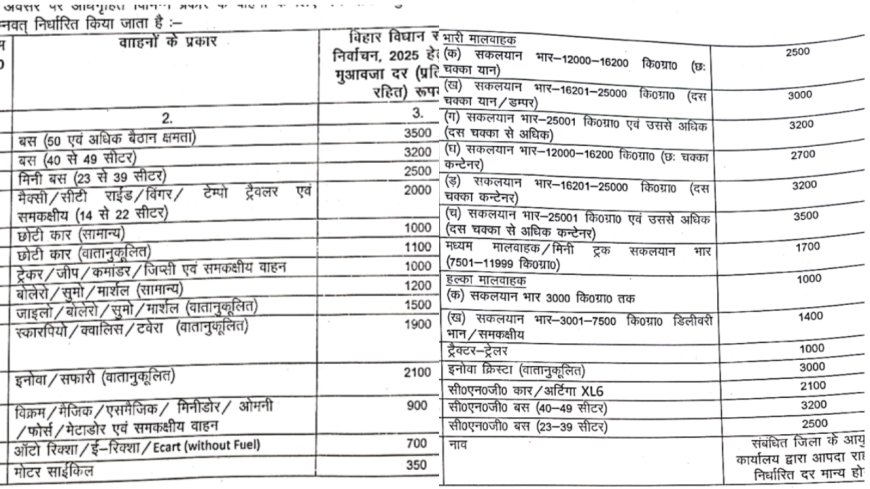 अवसर पर अधिगृहित विभिन्न प्रकार के वाहनों के
नवत् निर्धारित किया जाता है :–
वााहनों के प्रकार
बिहार विधान स
निर्वाचन, 2025 हे
मुआवजा दर (प्रति
रहित) रूप
2.
3.
बस (50 एवं अधिक बैठान क्षमता) 3500
बस (40 से 49 सीटर) 3200
मिनी बस (23 से 39 सीटर) 2500
मैक्सी/सीटी राईड/विंगर/ टेम्पो ट्रैवलर एवं 2000
समकक्षीय (14 से 22 सीटर)
छोटी कार (सामान्य) 1000
छोटी कार (वातानुकूलित) 1100
ट्रेकर/जीप/कमांडर/जिप्सी एवं समकक्षीय वाहन 1000
बोलेरो/सुमो/मार्शल (सामान्य) 1200
जाइलो/बोलेरो/सुमो/मार्शल (वातानुकूलित) 1500
स्कारपियो/क्वालिस/टवेरा (वातानुकूलित) 1900
इनोवा/सफारी (वातानुकूलित) 2100
विक्रम/मैजिक/एसमैजिक/ मिनीडोर/ ओमनी 900
/फोर्स/मेटाडोर एवं समकक्षीय वाहन
ऑटो रिक्शा/ई-रिक्शा/Ecart (without Fuel) 700
मोटर साईकिल 350
भारी मालवाहक
(क) सकलयान भार–12000–16200 कि0ग्रा0 (छः 2500
चक्का यान)
(ख) सकलयान भार–16201–25000 कि0ग्रा0 (दस 3000
चक्का यान/डम्पर)
(ग) सकलयान भार–25001 कि0ग्रा0 एवं उससे अधिक 3200
(दस चक्का से अधिक)
(घ) सकलयान भार–12000–16200 कि0ग्रा0 (छः चक्का 2700
कन्टेनर)
(ड़) सकलयान भार–16201–25000 कि0ग्रा0 (दस 3200
चक्का कन्टेनर)
(च) सकलयान भार–25001 कि0ग्रा0 एवं उससे अधिक 3500
(दस चक्का से अधिक कन्टेनर)
मध्यम मालवाहक/मिनी ट्रक सकलयान भार 1700
(7501–11999 कि0ग्रा0)
हल्का मालवाहक 1000
(क) सकलयान भार 3000 कि0ग्रा0 तक
(ख) सकलयान भार–3001–7500 कि0ग्रा0 डिलीवरी 1400
भान/समकक्षीय
ट्रैक्टर–ट्रेलर 1000
इनोवा क्रिस्टा (वातानुकूलित) 3000
सी0एन0जी0 कार/अर्टिगा XL6 2100
सी0एन0जी0 बस (40–49 सीटर) 3200
सी0एन0जी0 बस (23–39 सीटर) 2500
नाव संबंधित जिला के आयु
कार्यालय द्वारा आपदा राह
निर्धारित दर मान्य हो